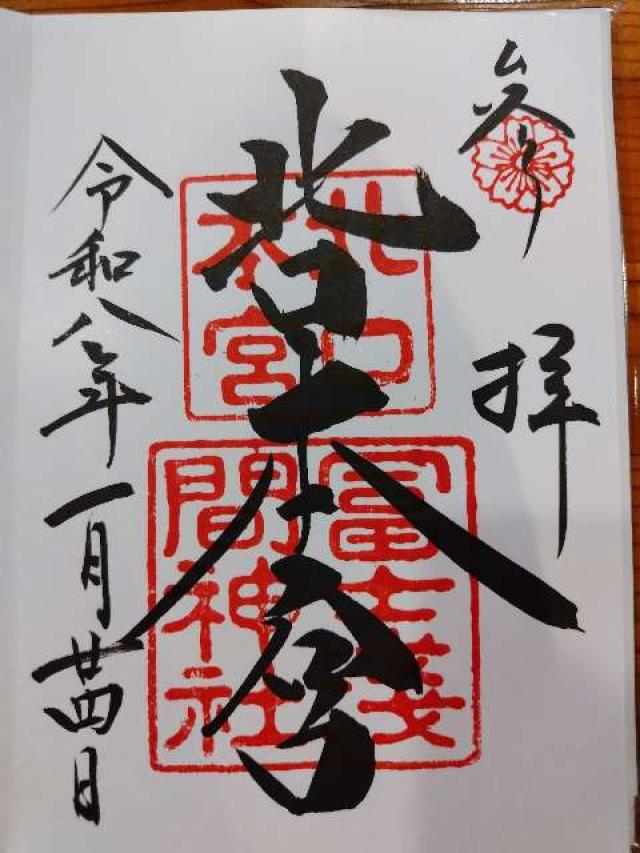 参拝
北口本宮
北口
本宮
冨士淺
間神社
令和八年一月廿四日